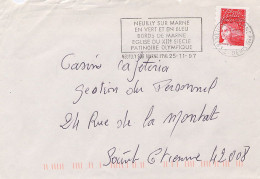 NEUILLY SUR MARNE
EN VERT ET EN BLEU
BORDS DE MARNE
EGLISE DU XIIE SIECLE
PATINOIRE OLYMPIQUE
25-11-97
Casino Cafétéria
Gestion du Personnel
24 Rue de la Montat
Saint Etienne 42008